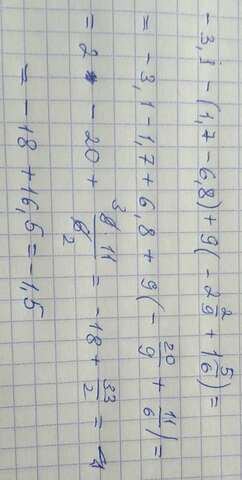 -3,1 - (1,7 - 6,8) + 9(-2 2/9 + 1 5/6) =
= -3,1 - 1,7 + 6,8 + 9(- 20/9 + 11/6) =
= 2 - 20 + 3 11/2 = -18 + 33/2 =
= -18 + 16,5 = -1,5